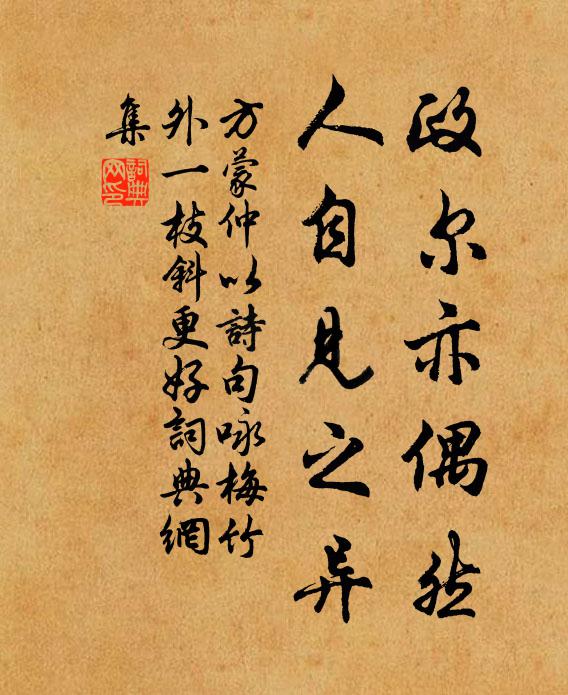 政尔亦偶然
人自見之异
方蒙仲以詩句咏梅竹
外一枝斜更好詞典網
集
詞典网印